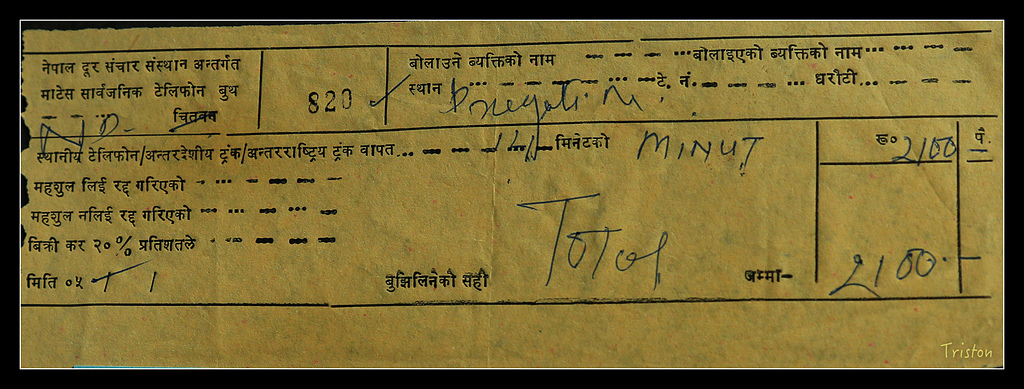 नेपाल दूर संचार संस्थान अन्तर्गत
माटेस सार्वजनिक टेलिफोन बुथ
चितवन
820
बोलाउने व्यक्तिको नाम
बोलाइएको व्यक्तिको नाम
स्थान
टे. नं.
धरौटी
स्थानीय टेलिफोन/अन्तरदेशीय ट्रंक/अन्तरराष्ट्रिय ट्रंक वापत मिनेटको MINUT
रू० 2100 पै.
महशुल लिई रद्द गरिएको
महशुल नलिई रद्द गरिएको
बिक्री कर २०% प्रतिशतले
Total
मिति ०५
बुझिलिनेको सही
जम्मा- 2100
Triston